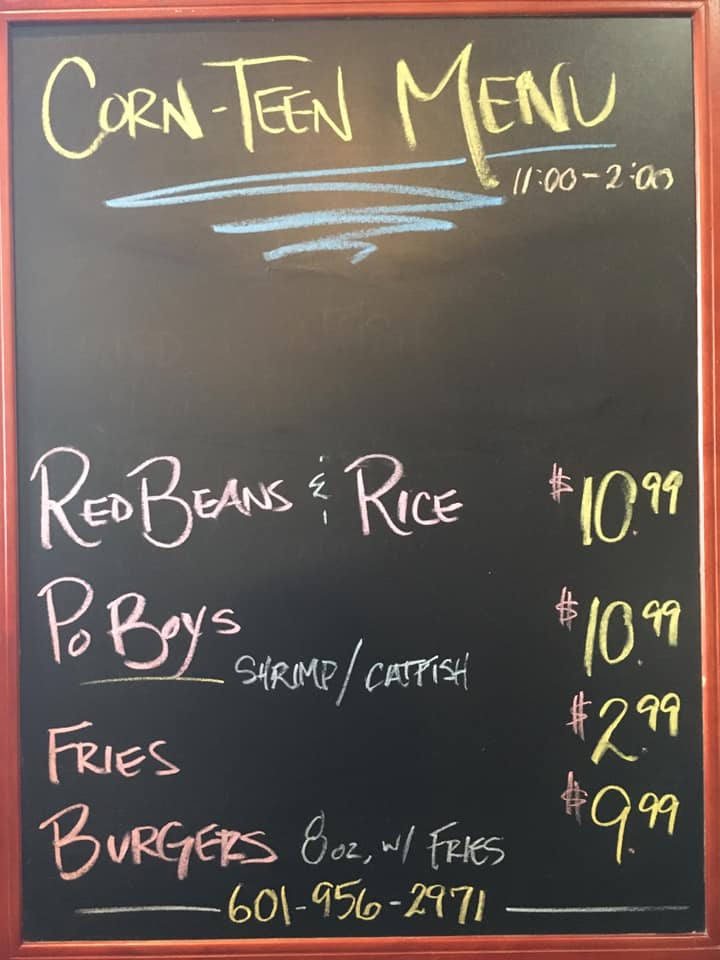 CORN-TEEN MENU
11:00-2:00
RED BEANS & RICE $10.99
PO BOYS $10.99
SHRIMP/CATFISH
FRIES $2.99
BURGERS 8oz, w/ FRIES $9.99
601-956-2971